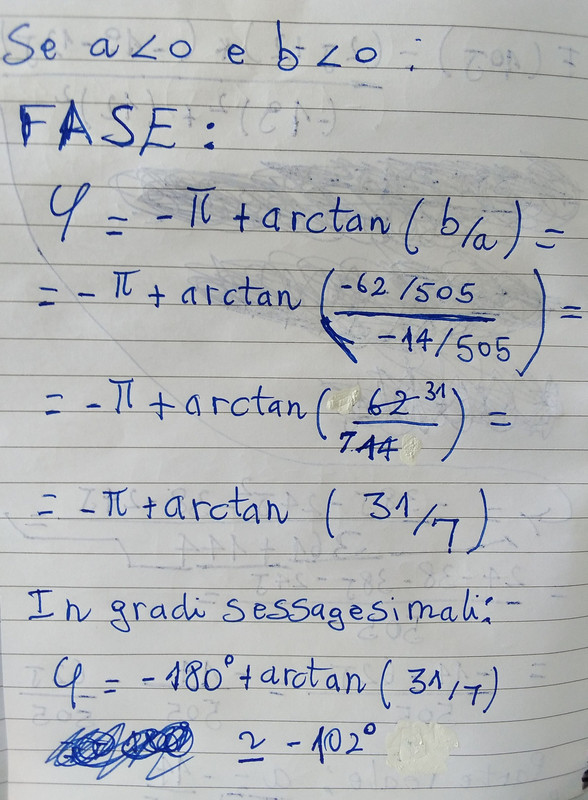 Se a<0 e b<0:
FASE:
φ = -π + arctan ( b/a ) =
= -π + arctan ( -62/505
-14/505 ) =
= -π + arctan ( 62 31
7 14 ) =
= -π + arctan ( 31/7 )
In gradi sessagesimali:
φ = -180° + arctan ( 31/7 )
≃ -102°